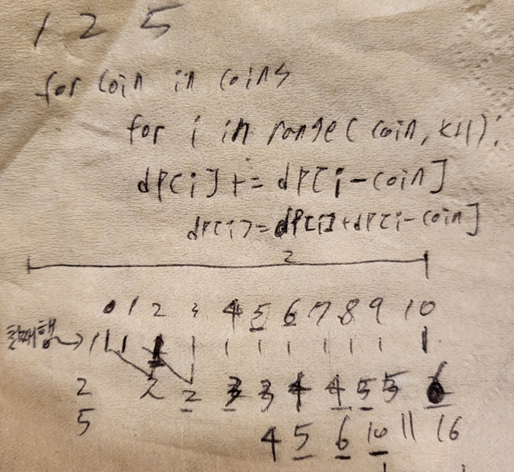 1 2 5
for coin in coins
for i in range(coin, k+1):
dp[i] += dp[i-coin]
dp[i] = dp[i]+dp[i-coin]
2
0 1 2 3 4 5 6 7 8 9 10
첫째행 → 1 1 1 1 1 1 1 1 1 1 1
2 2 2 3 3 4 4 5 5 6
5 4 5 6 10 11 16